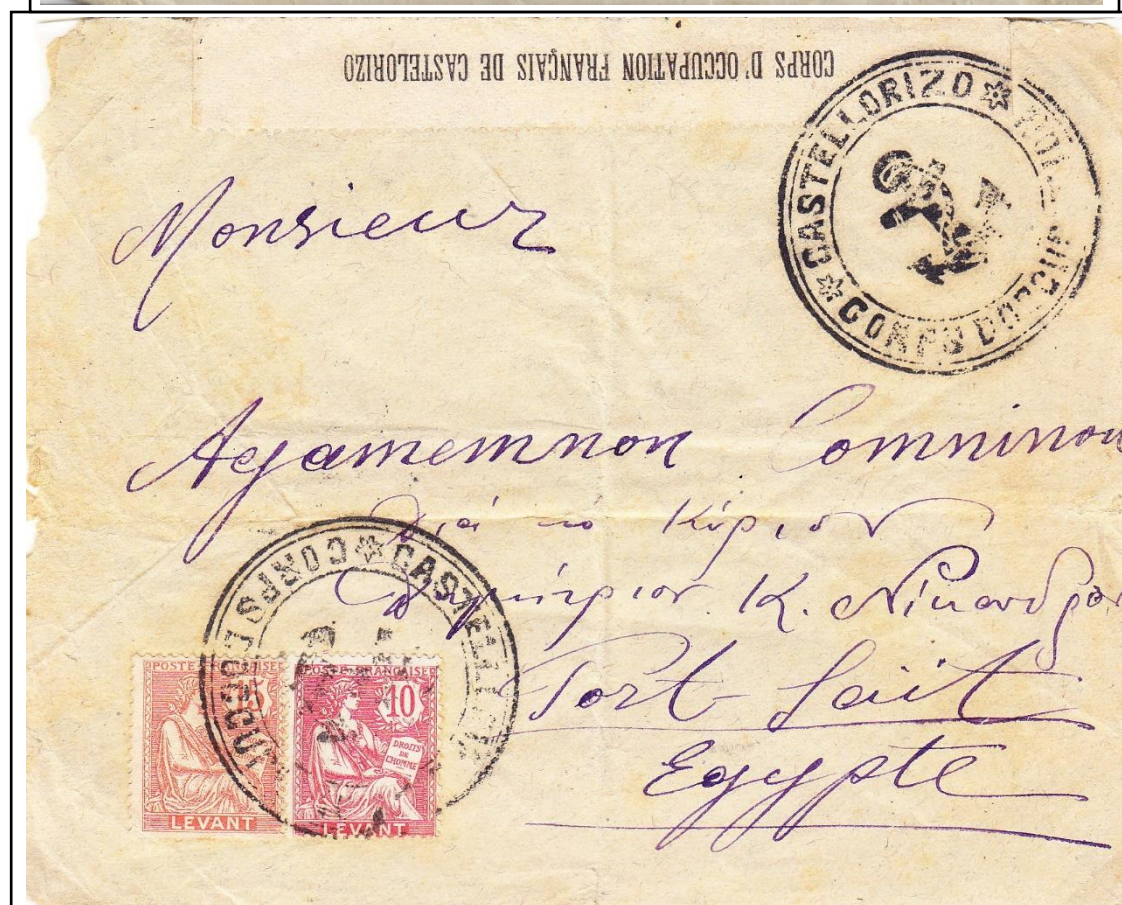 CORPS D'OCCUPATION FRANÇAIS DE CASTELORIZO
CASTELLORIZO
CORPS D'OCCUP
Monsieur
Agamemnon Comninou
διά τό Κύριον
Δημήτριον Κ. Νίκανδρον
Port-Saït
Egypte
CORPS D'OCCUP
CASTELLORI
POSTE FRANÇAISE
15
LEVANT
POSTE FRANÇAISE
10
DROITS
DE
L'HOMME
LEVANT